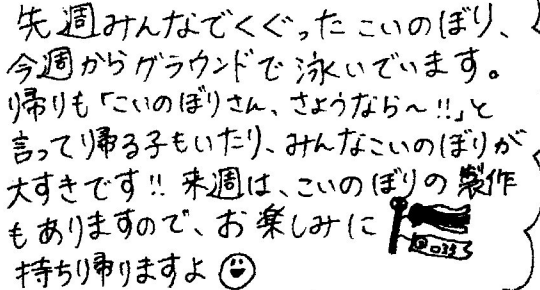 先週みんなでくぐったこいのぼり、
今週からグラウンドで泳いでいます。
帰りも「こいのぼりさん、さようなら〜!!」と
言って帰る子もいたり、みんなこいのぼりが
大すきです!! 来週は、こいのぼりの製作
もありますので、お楽しみに
持ち帰りますよ